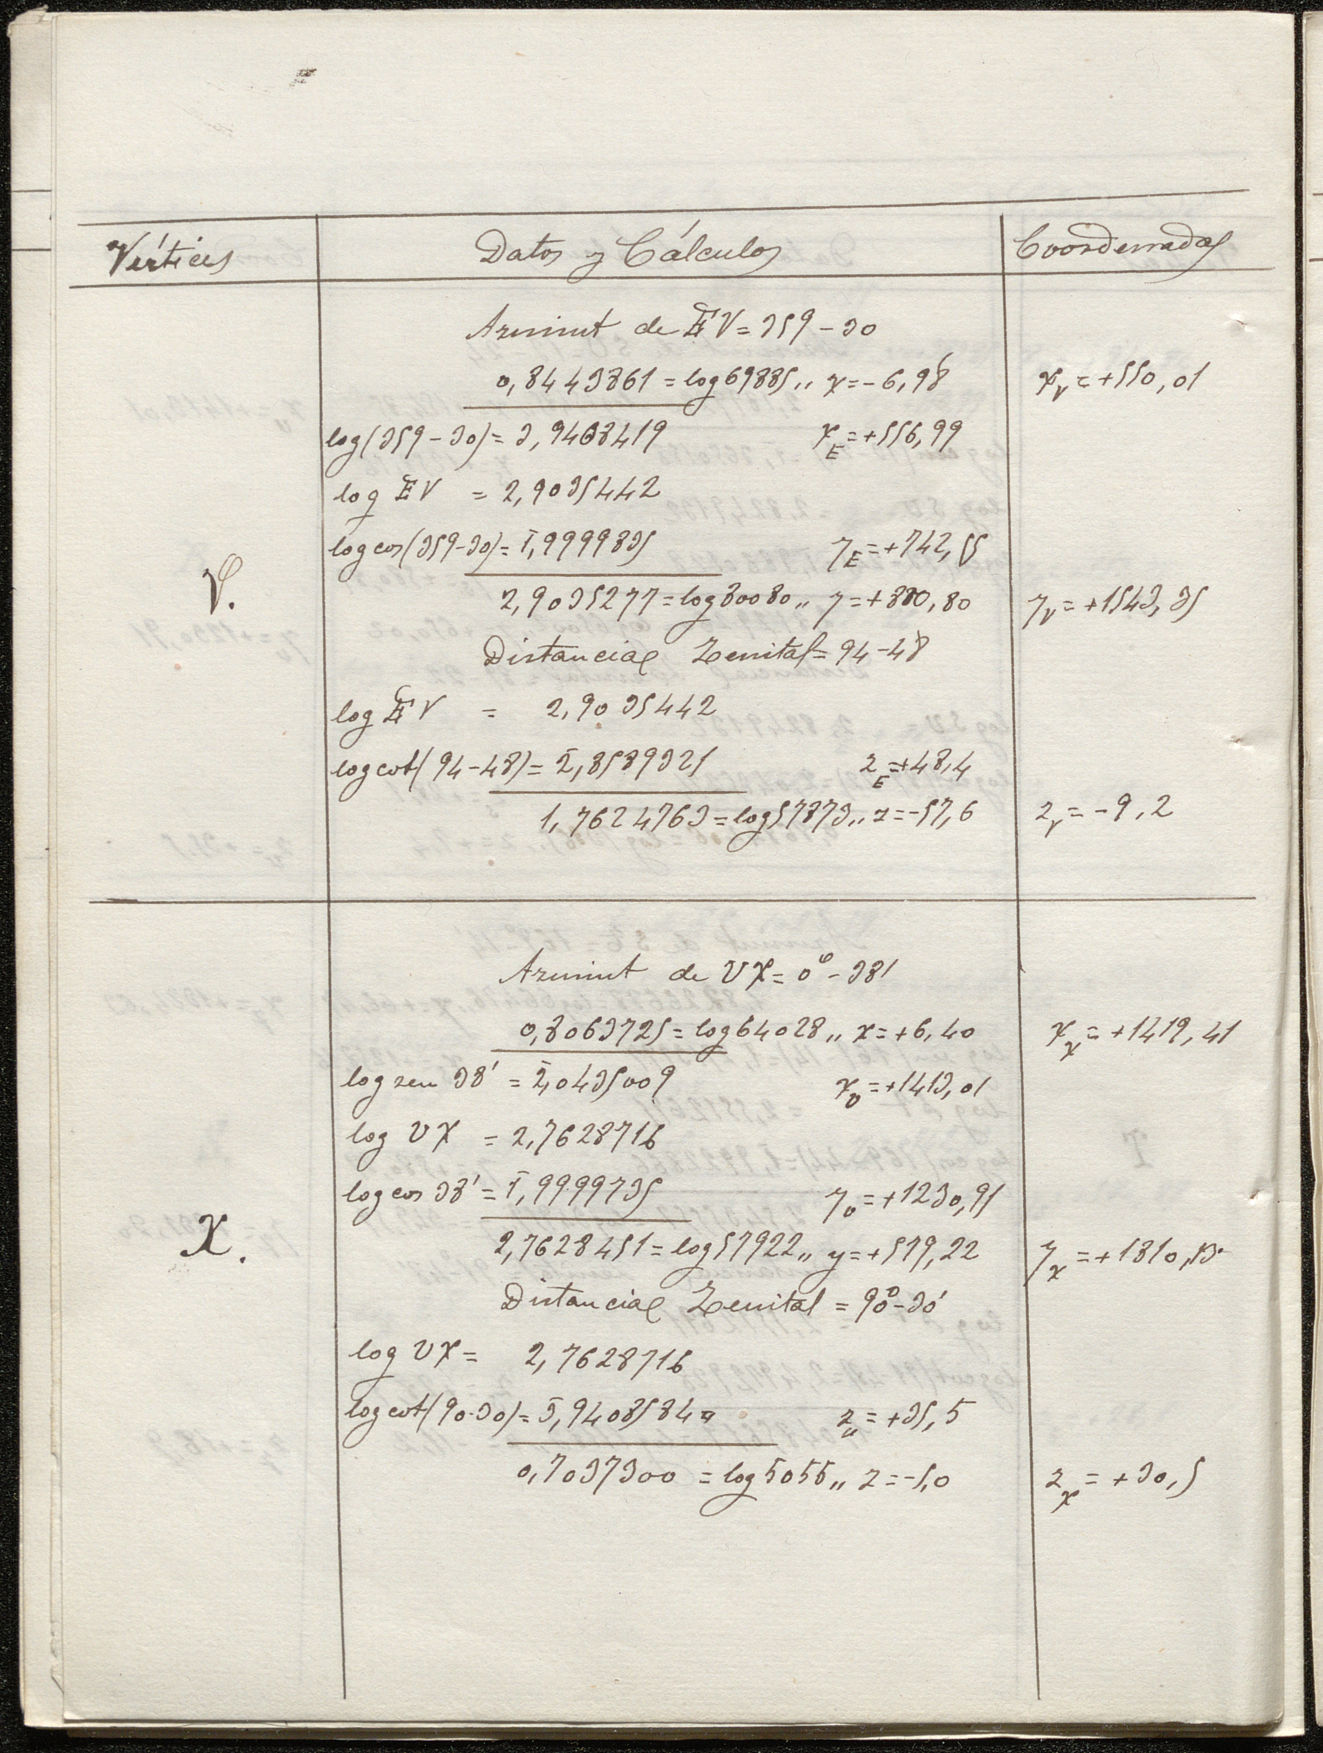 Vértices Datos y Cálculos Coordenadas
Azimut de EV = 359 - 30
0,8443861 = log 69885,, x = -6,98 xv = +550,01
log (359 - 30) = 3,9408419 xE = +556,99
log EV = 2,9035442
log cos (359-30) = 1̄,9999835 yE = +742,55
V.
2,9035277 = log 80080,, y = +800,80 yv = +1543,35
Distancia Zenital = 94-48
log EV = 2,9035442
log cot (94-48) = 2̄,8589321 zE = +48,4
1,7624763 = log 57873,, z = -57,6 zv = -9,2
Azimut de UX = 0° - 38'
0,8063725 = log 64028,, x = +6,40 xx = +1419,41
log sen 38' = 2̄,0435009 xU = +1413,01
log UX = 2,7628716
log cos 38' = 1̄,9999735 yU = +1230,91
X.
2,7628451 = log 57922,, y = +579,22 yx = +1810,13
Distancia Zenital = 90° - 30'
log UX = 2,7628716
log cot (90-30) = 3̄,9408584 zu = +35,5
0,7037300 = log 5055,, z = -5,0 zx = +30,5